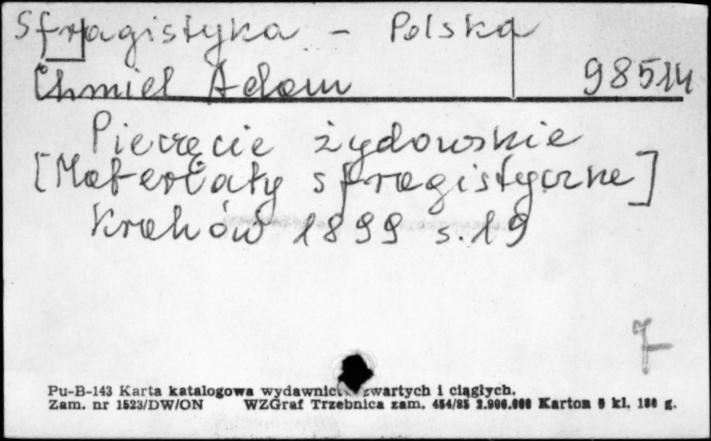 Sfragistyka - Polska
Chmiel Adam 98514
Pieczęcie żydowskie
[Materiały sfragistyczne]
Kraków 1899 s. 19
7
Pu-B-143 Karta katalogowa wydawnictw zwartych i ciągłych.
Zam. nr 1523/DW/ON WZGraf Trzebnica zam. 454/85 2.000.000 Karton kl. g.